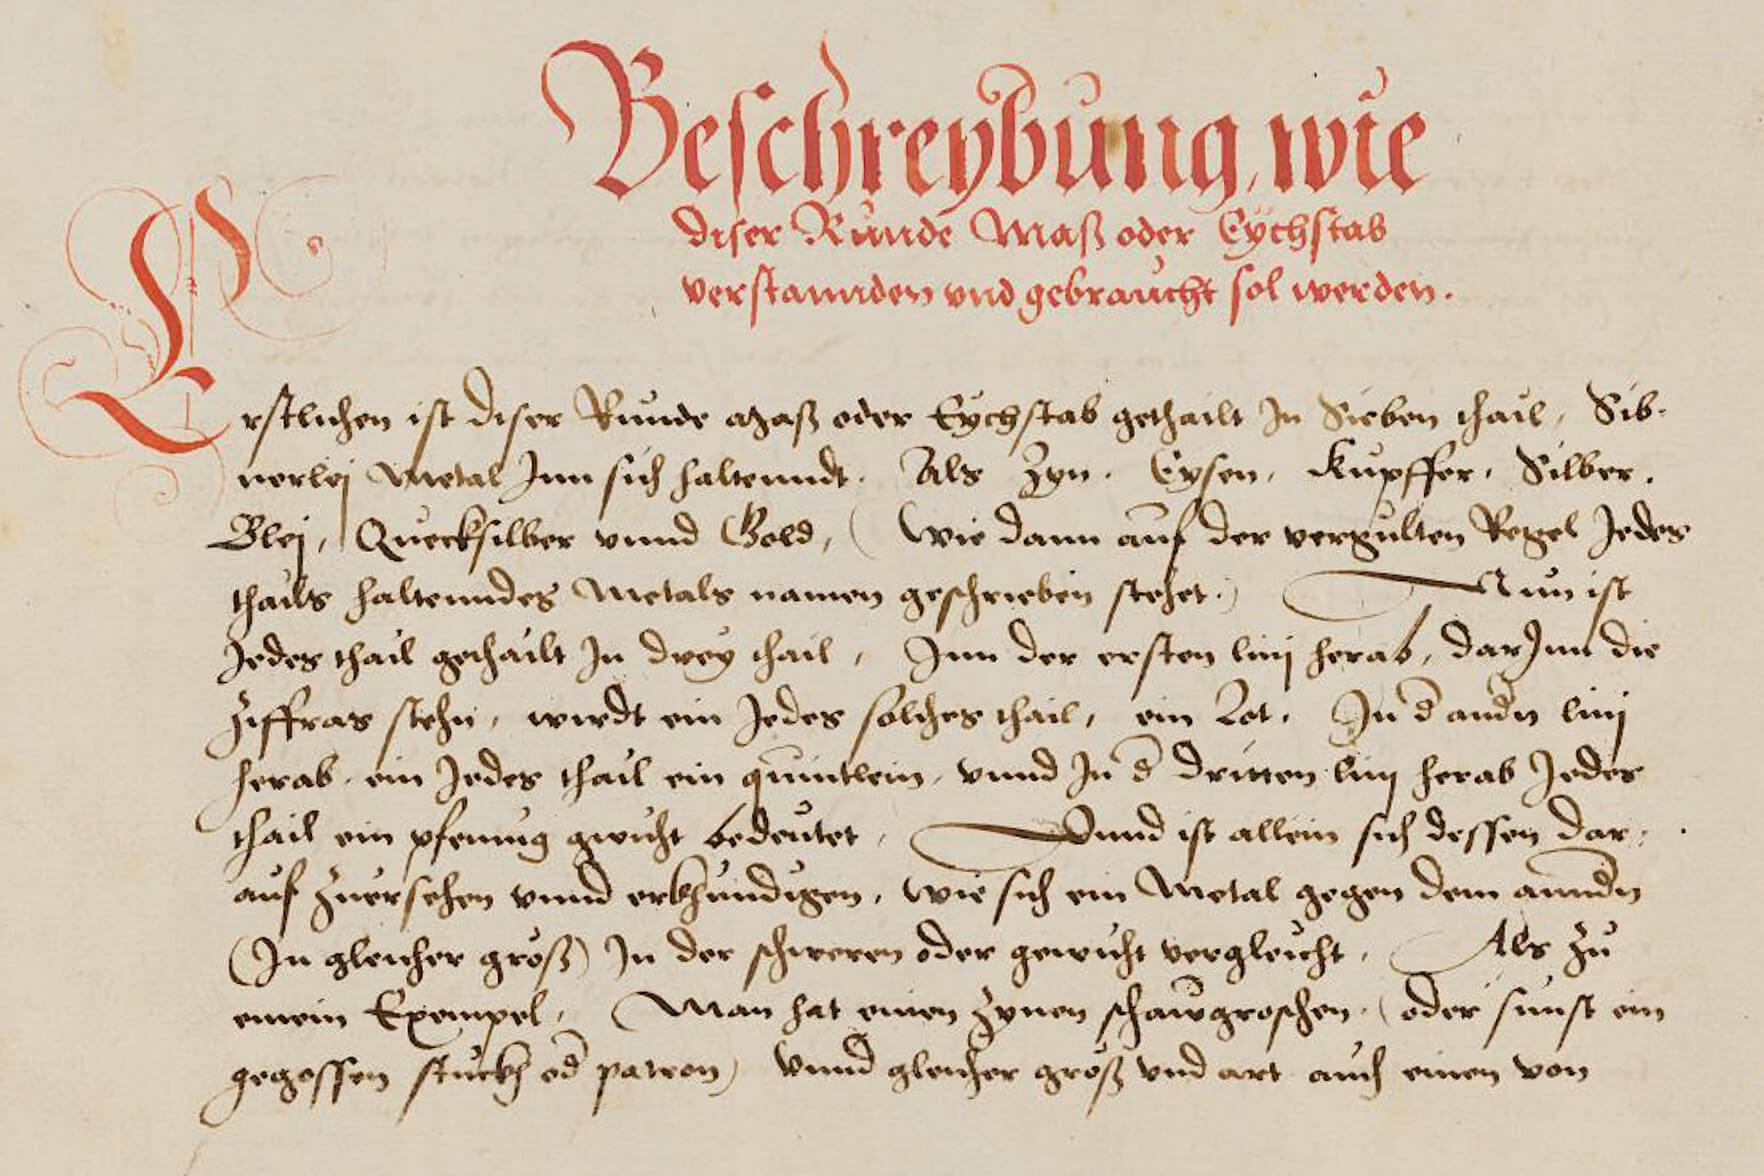 Beschreybung, wie
diser Runde Maß oder Eychstab
verstannden vnd gebraucht sol werden.
Erstlichen ist diser Runde Maß oder Eychstab gethailt In Sieben thail, Sib-
nerlej Metal Inn sich haltenndt. Als Zyn. Eysen, Kupffer, Silber.
Blej, Quecksilber vnnd Gold, (Wie dann auf der vergulten Regel Jedes
thails haltenndes Metals namen geschrieben stehet.) Nun ist
Jedes thail gethailt In drey thail, Inn der ersten linj herab, darInn die
Ziffras stehn, wirdt ein Jedes solches thail, ein Lot. In d andn linj
herab, ein Jedes thail ein quintlein, vnnd In d dritten linj herab Jedes
thail ein pfennig gwicht bedeutet, Vnnd ist allein sich dessen dar-
auf zuersehen vnnd erkhundigen, wie sich ein Metal gegen dem anndn
(In gleicher größ) In der schweren oder gewicht vergleicht, Als zu
einem Exempel, Man hat einen Zynen schawgroschen. (oder sunst ein
gegossen stuckh od patron) Vnnd gleicher größ vnd art auch einen von